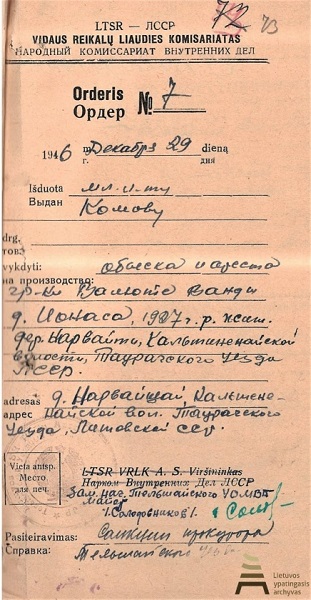 72 73
LTSR — ЛССР
VIDAUS REIKALŲ LIAUDIES KOMISARIATAS
НАРОДНЫЙ КОМИССАРИАТ ВНУТРЕННИХ ДЕЛ
Orderis
Ордер № 7
1946 m. Декабря 29 dieną
г. дня
Išduota мл. л-ту
Выдан Комову
drg.
тов.
vykdyti: обыска и ареста
на производство:
гр-ки Валюте Ванды
д. Ионаса, 1927 г.р. жит.
дер. Нарвайти, Кальтиненайской
волости, Таурагского уезда
ЛССР.
adresas д. Нарвайщай Кальтине-
адрес найской вол. Таурагского
уезда, Литовской ССР.
Vieta antsp.
Место
для печ.
LTSR VRLK A. S. Viršininkas
Нарком Внутренних Дел ЛССР
Зам. нач. Тельшайского УОМВД
Майор
/Солодовников/
Pasiteiravimas: Санкция прокурора
Справка: Тельшайской
Lietuvos
ypatingasis
archyvas